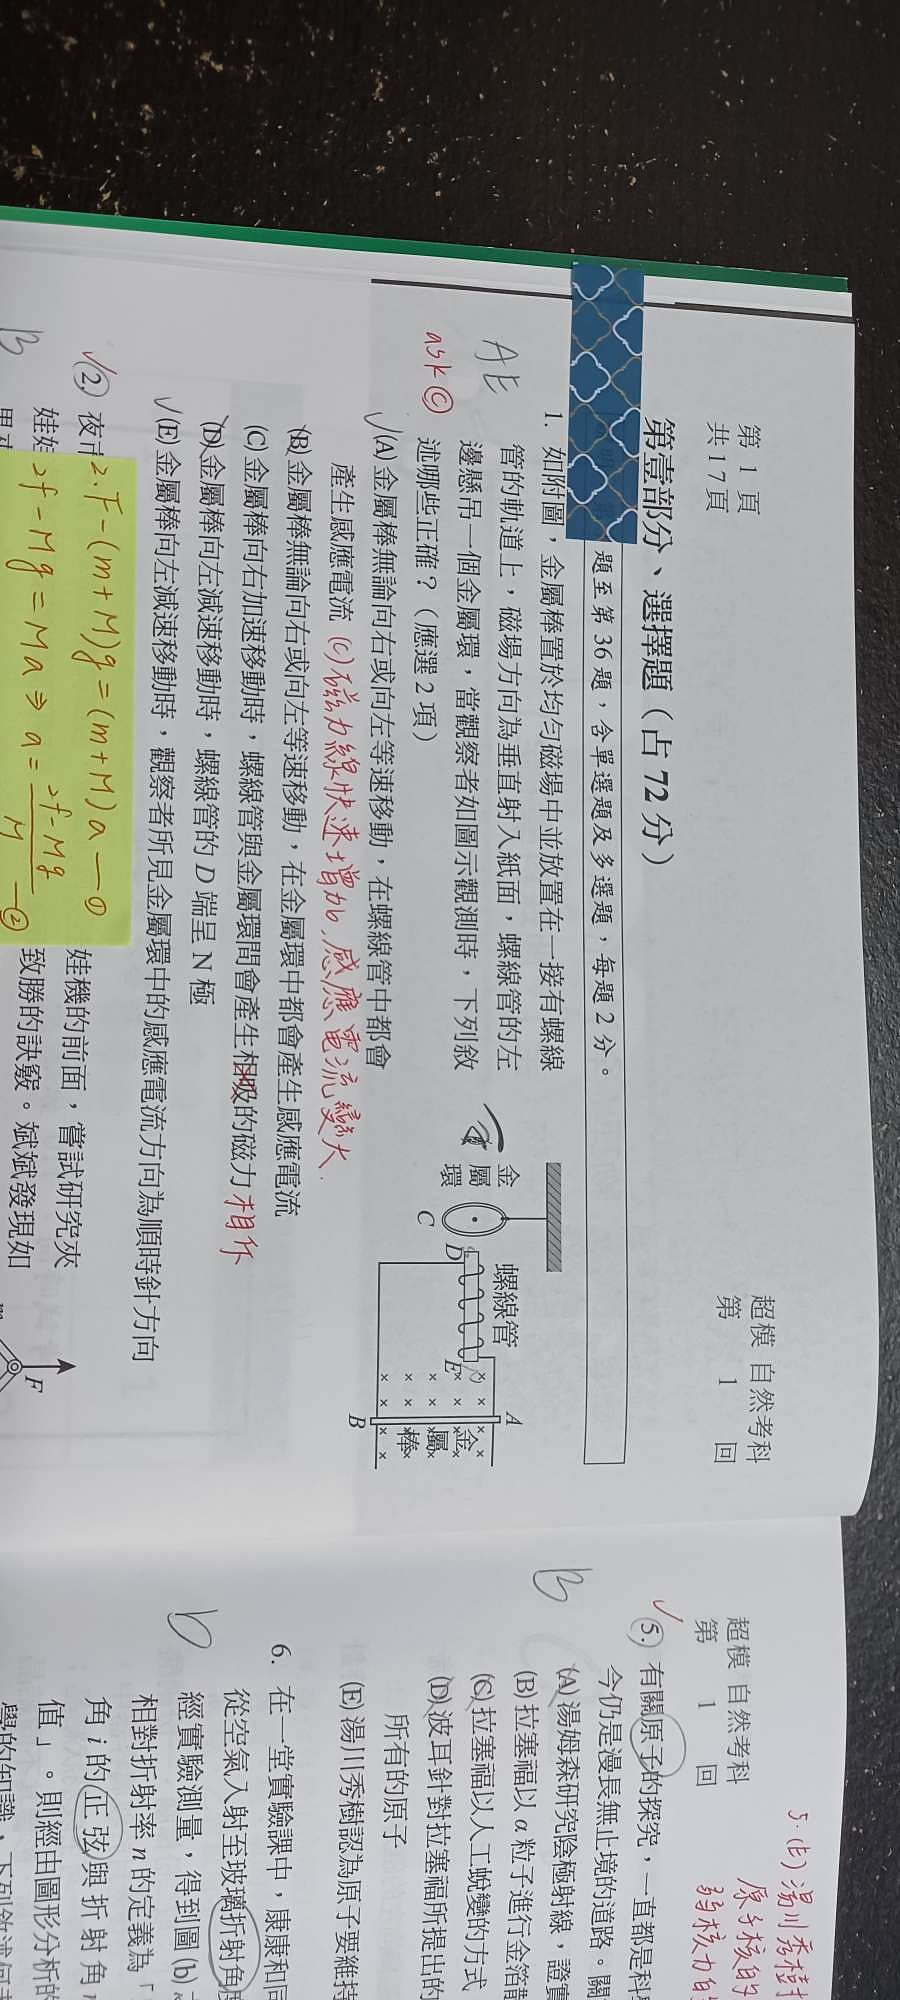 第 1 頁
共 17 頁
超模 自然考科
第 1 回
第壹部分、選擇題（占 72 分）
題至第 36 題，含單選題及多選題，每題 2 分。
AE
ask ©
1. 如附圖，金屬棒置於均勻磁場中並放置在一接有螺線
管的軌道上，磁場方向為垂直射入紙面，螺線管的左
邊懸吊一個金屬環，當觀察者如圖示觀測時，下列敘
述哪些正確？（應選 2 項）
金屬環
C
螺線管
D
E
A
金屬棒
B
(A) 金屬棒無論向右或向左等速移動，在螺線管中都會
產生感應電流
(C) 磁力線快速增加，感應電流變大.
(B) 金屬棒無論向右或向左等速移動，在金屬環中都會產生感應電流
(C) 金屬棒向右加速移動時，螺線管與金屬環間會產生相吸的磁力 相斥
(D) 金屬棒向左減速移動時，螺線管的 D 端呈 N 極
(E) 金屬棒向左減速移動時，觀察者所見金屬環中的感應電流方向為順時針方向
B
2. 夜市
娃機的前面，嘗試研究夾
娃娃
致勝的訣竅。斌斌發現如
F
2. F-(m+M)g=(m+M)a —①
2f-Mg=Ma⇒a=2f-Mg/M —②
超模 自然考科
第 1 回
5. (E) 湯川秀樹
原子核的
弱核力的
B
5. 有關原子的探究，一直都是科學
今仍是漫長無止境的道路。關
(A) 湯姆森研究陰極射線，證實
(B) 拉塞福以 α 粒子進行金箔
(C) 拉塞福以人工蛻變的方式
(D) 波耳針對拉塞福所提出的
所有的原子
(E) 湯川秀樹認為原子要維持
D
6. 在一堂實驗課中，康康和同
從空氣入射至玻璃折射角度
經實驗測量，得到圖(b)
相對折射率 n 的定義為「
角 i 的正弦與折射角 r
值」。則經由圖形分析的
學的知識，下列敘述何